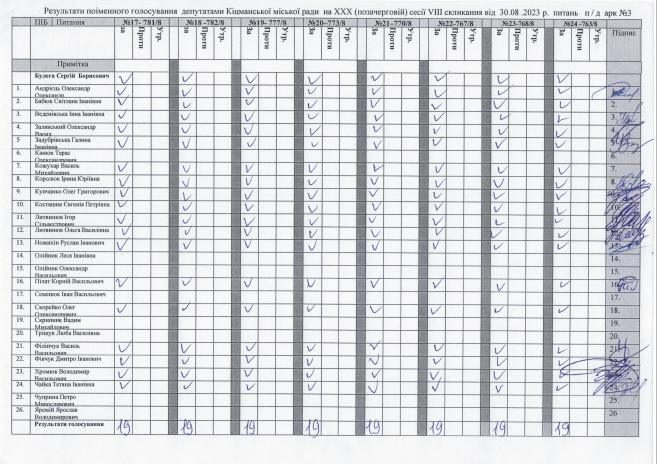 Результати поіменного голосування депутатами Кіцманської міської ради на ХХХ (позачерговій) сесії VIII скликання від 30.08 .2023 р. питань п / д арк №3
ПІБ | Питання №17- 781/8 №18 -782/8 №19- 777/8 №20–773/8 №21–770/8 №22-767/8 №23-768/8 №24 -763/8 Підпис
За Проти Утр. За Проти Утр. За Проти Утр. За Проти Утр. За Проти Утр. За Проти Утр. За Проти Утр. За Проти Утр.
Примітка
Булега Сергій Борисович
1. Андрієць Олександр
Олександр.
2. Бабюк Світлана Іванівна 2.
3. Веденівська Інна Іванівна 3.
4. Залявський Олександр
5 Задубрівська Галина
Іванівна
6. Канюк Тарас 6.
Олександрович
7. Кожухар Василь 7.
Михайлович
8. Королюк Ірина Юріївна 8.
9. Купчанко Олег Григорович
10. Косташик Євгенія Петрівна
11. Литвинюк Ігор
Сільвестрович
12. Литвинюк Ольга Василівна
13. Новохін Руслан Іванович
14. Олійник Леся Іванівна 14.
15. Олійник Олександр 15.
Васильович
16. Пілат Корній Васильович
17. Семенюк Іван Васильович 17.
18. Скорейко Олег 18.
Олександрович
19. Скрипник Вадим 19.
Михайлович
20. Тріщук Люба Василівна 20.
21. Філіпчук Василь 21.
Васильович
22. Фівчук Дмитро Іванович
23. Хромюк Володимир
Васильович
24. Чайка Тетяна Іванівна
25. Чуприна Петро 25.
Мирославович
26. Яремій Ярослав 26
Володимирович
Результати голосування 19 19 19 19 19 19 19 19